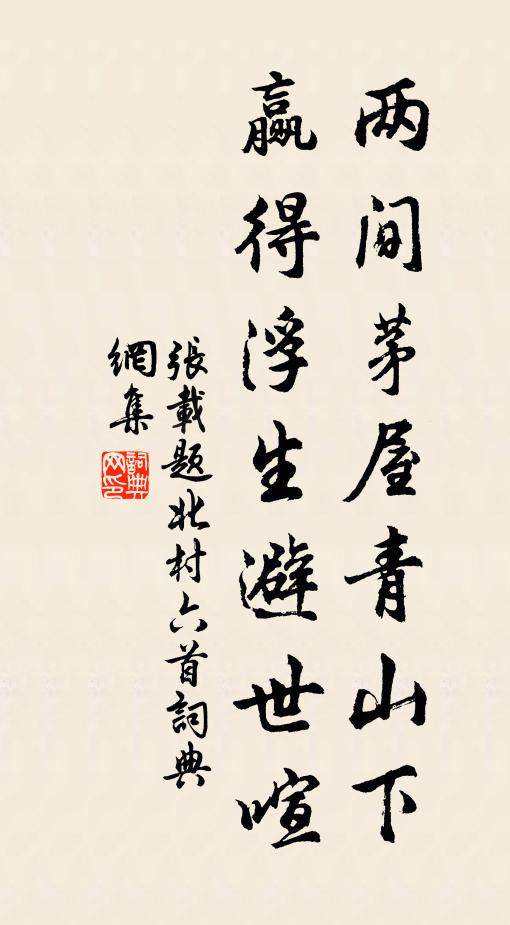 两间茅屋青山下
赢得浮生避世喧
張載题北村六首詞典
網集
詞典网印